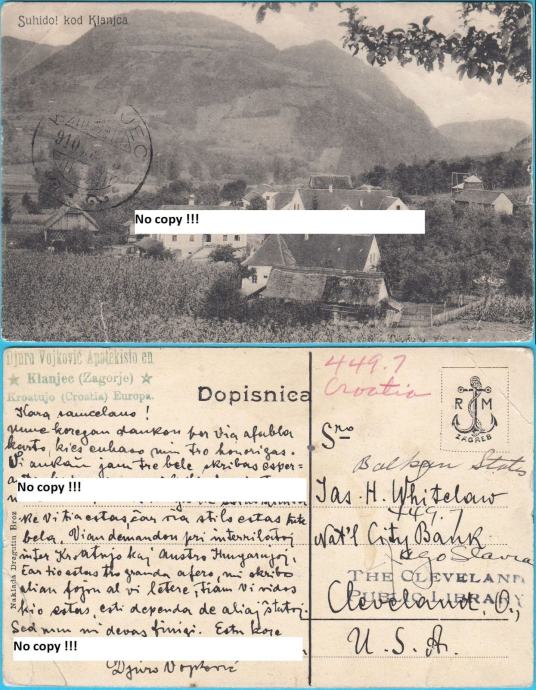 Suhidol kod Klanjca
No copy !!!
Djuro Vojković Apotekisto en
★ Klanjec (Zagorje) ★
Kroatujo (Croatia) Europa.
Dopisnica
449.7
Croatia
R M
ZAGREB
Kara samcelano!
koregan dankon por via afabla
karto, kies enhavo min tre
Vi ankaŭ jam tre bele skribas esper-
No copy !!!
Ke vi tia estas, ĉar via stilo estas tute
bela. Vian demandon pri interrilatoj
inter Kroatujo kaj Austro Hungarujoj,
ĉar tio estas tro granda afero, mi skribos
alian fojon al vi letere, tiam Vi vidos
kio estas, esti dependa de aliaj ŝtatoj.
Sed nun mi devas finiĝi. Estu kore
No copy !!!
Naklada Dragutin Broz
Sro
Balkan States
Jas. H. Whitelaw
449.7
Nat'l City Bank
Jugo Slavia
THE CLEVELAND
PUBLIC LIBRARY
Cleveland, O.,
U. S. A.